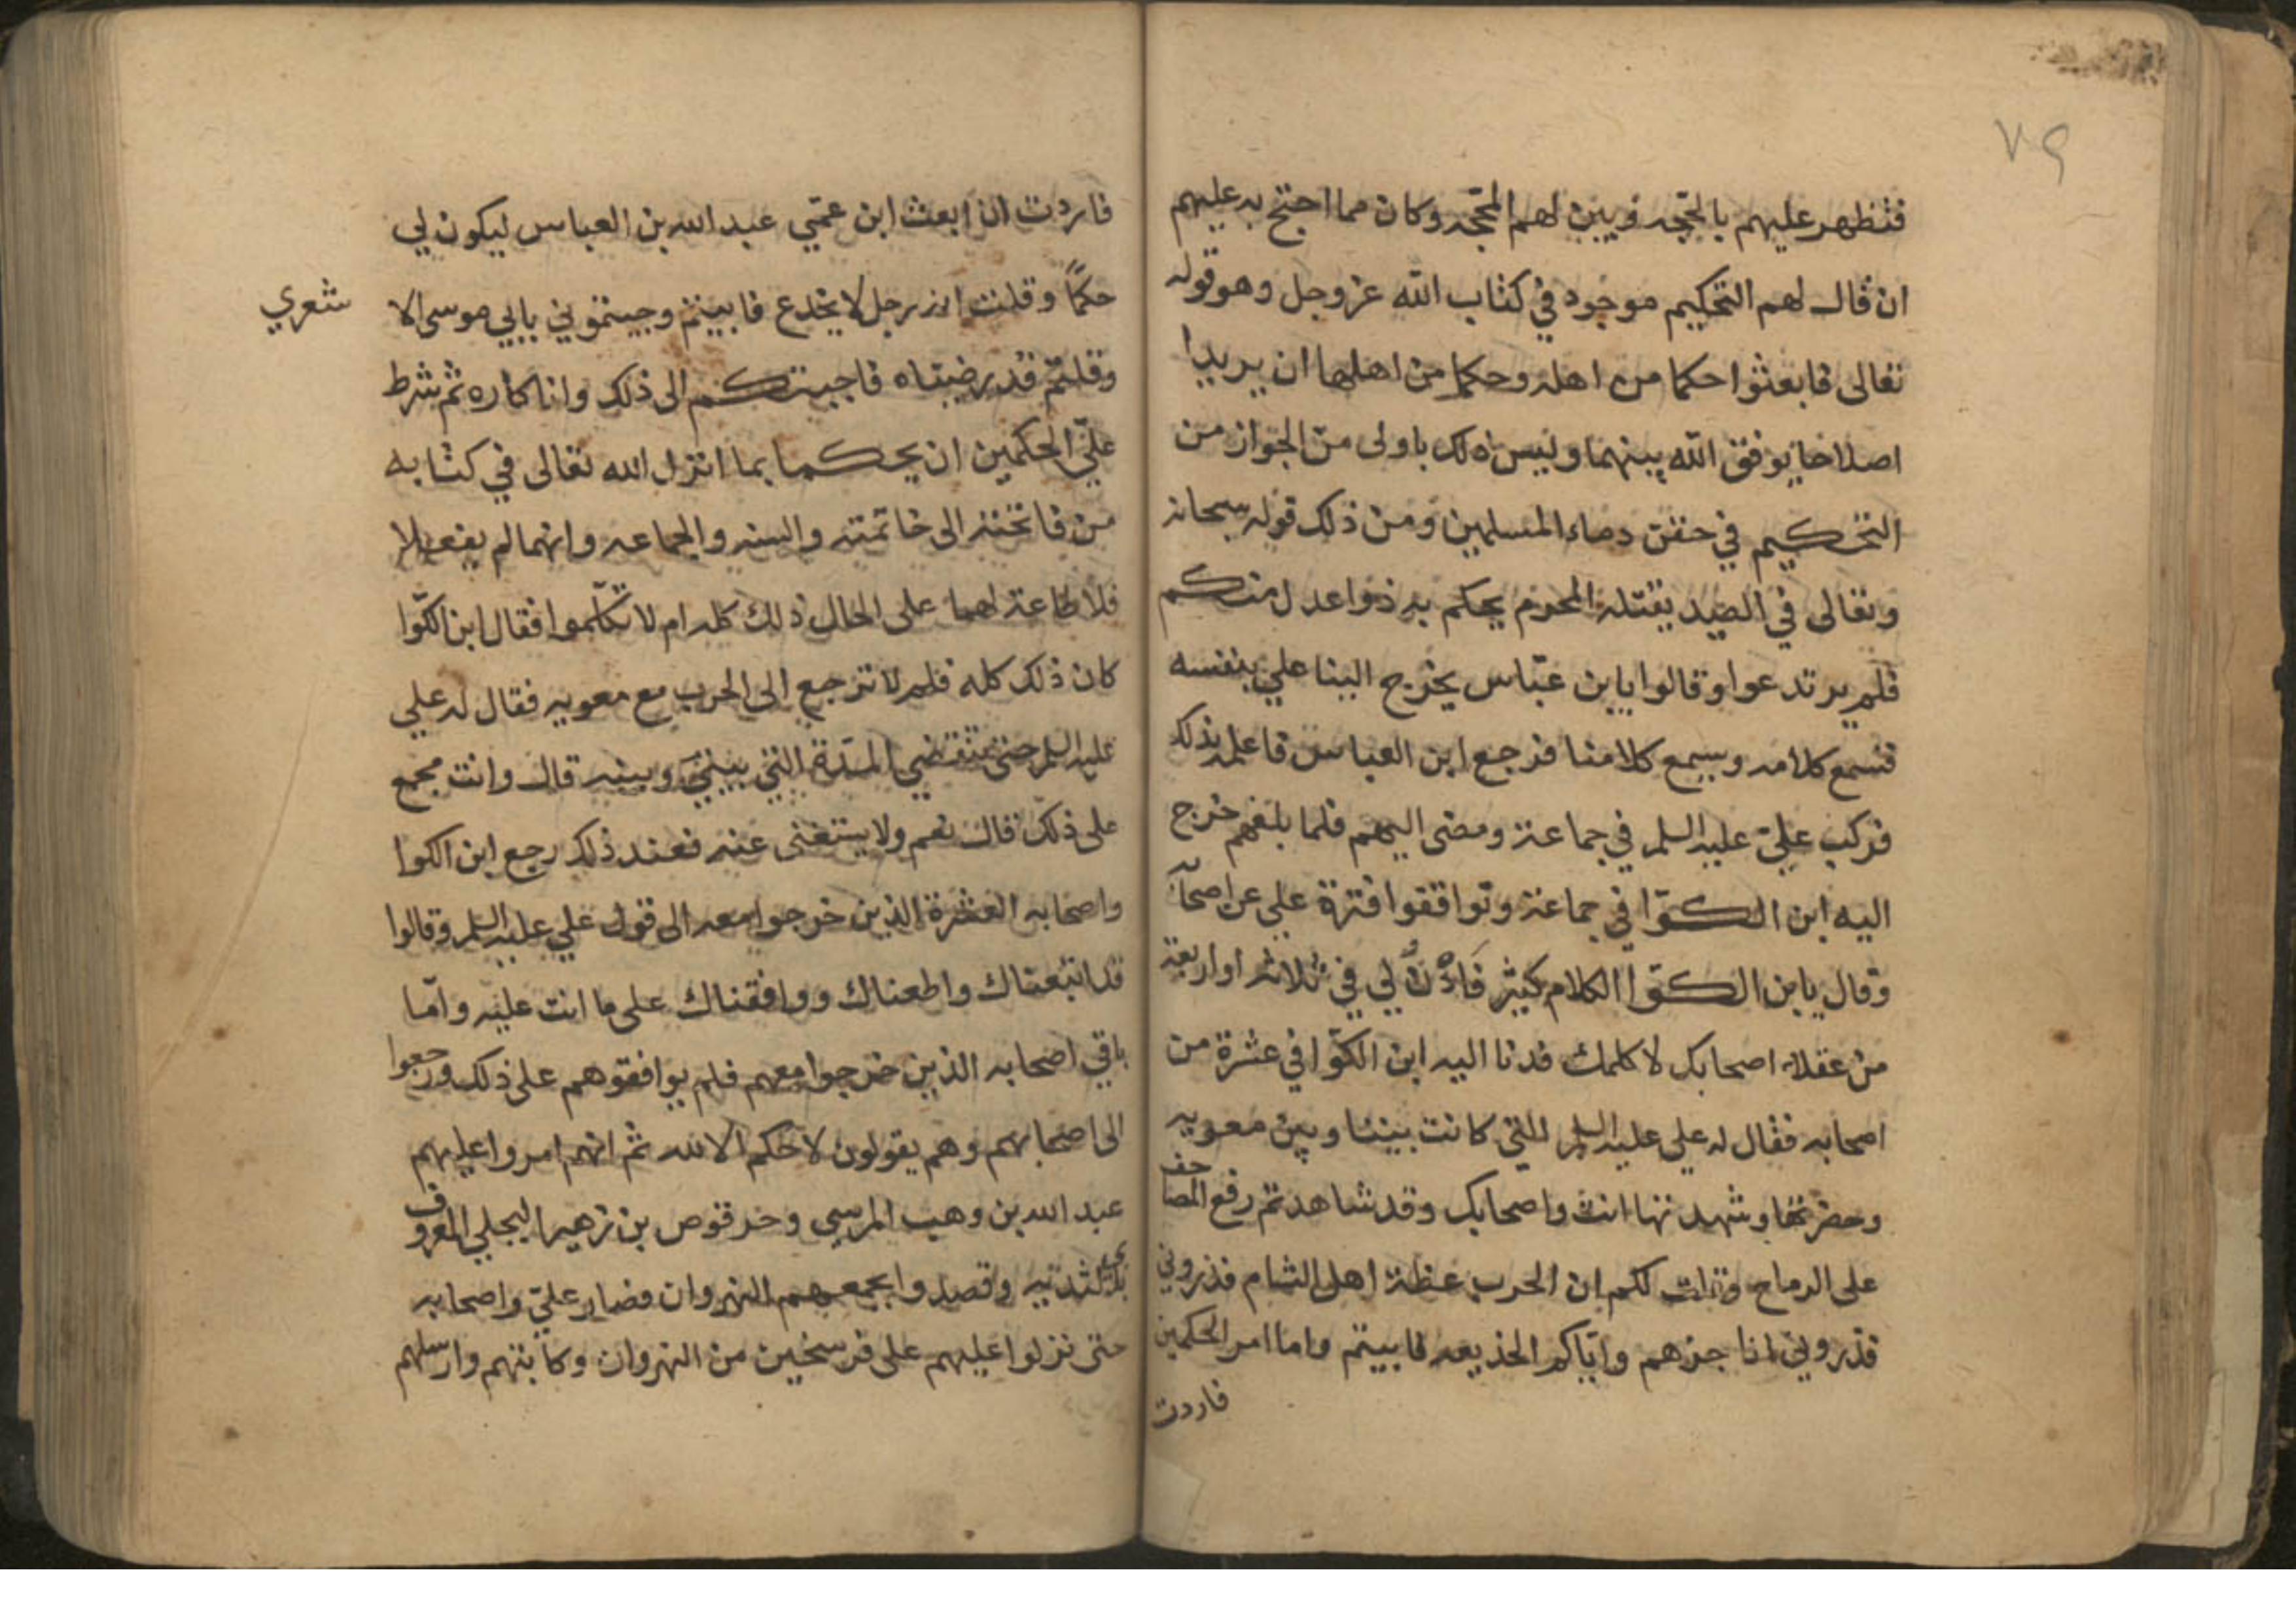 ٧٩
فتظهر عليهم بالحجه ويبين لهم المحجه وكان مما احتج به عليهم
ان قال لهم التحكيم موجود في كتاب الله عز وجل وهو قوله
تعالى فابعثوا حكما من اهله وحكما من اهلها ان يريدا
اصلاحا يوفق الله بينهما وليس ذلك باولى من الجواز من
التحكيم في حقن دماء المسلمين ومن ذلك قوله سبحانه
وتعالى في الصيد يقتله المحرم يحكم به ذوا عدل منكم
فلم يرتدعوا وقالوا يابن عباس يخرج الينا علي بنفسه
فنسمع كلامه ويسمع كلامنا فرجع ابن العباس فاعلمه بذلك
فركب عليّ عليه السلم في جماعة ومضى اليهم فلما بلغهم خرج
اليه ابن الكوّا في جماعة وتواقفوا فترة علي عن اصحابه
وقال يابن الكوّا الكلام كثير فَادْنُ لي في ثلاثه او اربعة
من عقلاء اصحابك لاكلمك فدنا اليه ابن الكوّا في عشرة من
اصحابه فقال له علي عليه السلم التي كانت بيننا وبين معويه
وحضرتها وشهدتها انت واصحابك وقد شاهدتم رفع المصاحف
على الرماح وقلت لكم ان الحرب عظة اهل الشام فذروني
فذروني اناجزهم واياكم الخذيعه فابيتم واما امر الحكمين
فاردت
فاردت ان ابعث ابن عمّي عبد الله بن العباس ليكون لي
حكمًا وقلت انه رجل لا يخدع فابيتم وجيتموني بابي موسى الا
شعري
وقلتم قد رضيناه فاجبتكم الى ذلك وانا كاره ثم شرط
عليّ الحكمين ان يحكما بما انزل الله تعالى في كتابه
من فاتحته الى خاتمته والسنه والجماعه وانهما لم يفعلا
فلا طاعة لهما على الحال ذلك كله ام لا تكلّموا فقال ابن الكوّا
كان ذلك كله فلم لا ترجع الى الحرب مع معويه فقال له علي
عليه السلم حتى تنقضي المدّة التي بيني وبينه قال وانت مجمع
على ذلك قال نعم ولا يستغنى عنه فعند ذلك رجع ابن الكوا
واصحابه العشرة الذين خرجوا معه الى قول علي عليه السلم وقالوا
قد اتبعناك واطعناك ووافقناك على ما انت عليه وامّا
باقي اصحابه الذين خرجوا معهم فلم يوافقوهم على ذلك ورجعوا
الى اصحابهم وهم يقولون لا حكم الا لله ثم انهم امروا عليهم
عبد الله بن وهب المرسي وحرقوص بن زهير البجلي المعروف
بذي الثديه وقصدوا بجمعهم النهروان فصار عليّ واصحابه
حتى نزلوا عليهم على فرسخين من النهروان وكاتبهم وارسلهم